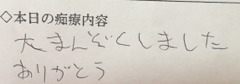 ◇本日の痴療内容
大まんぞくしました
ありがとう